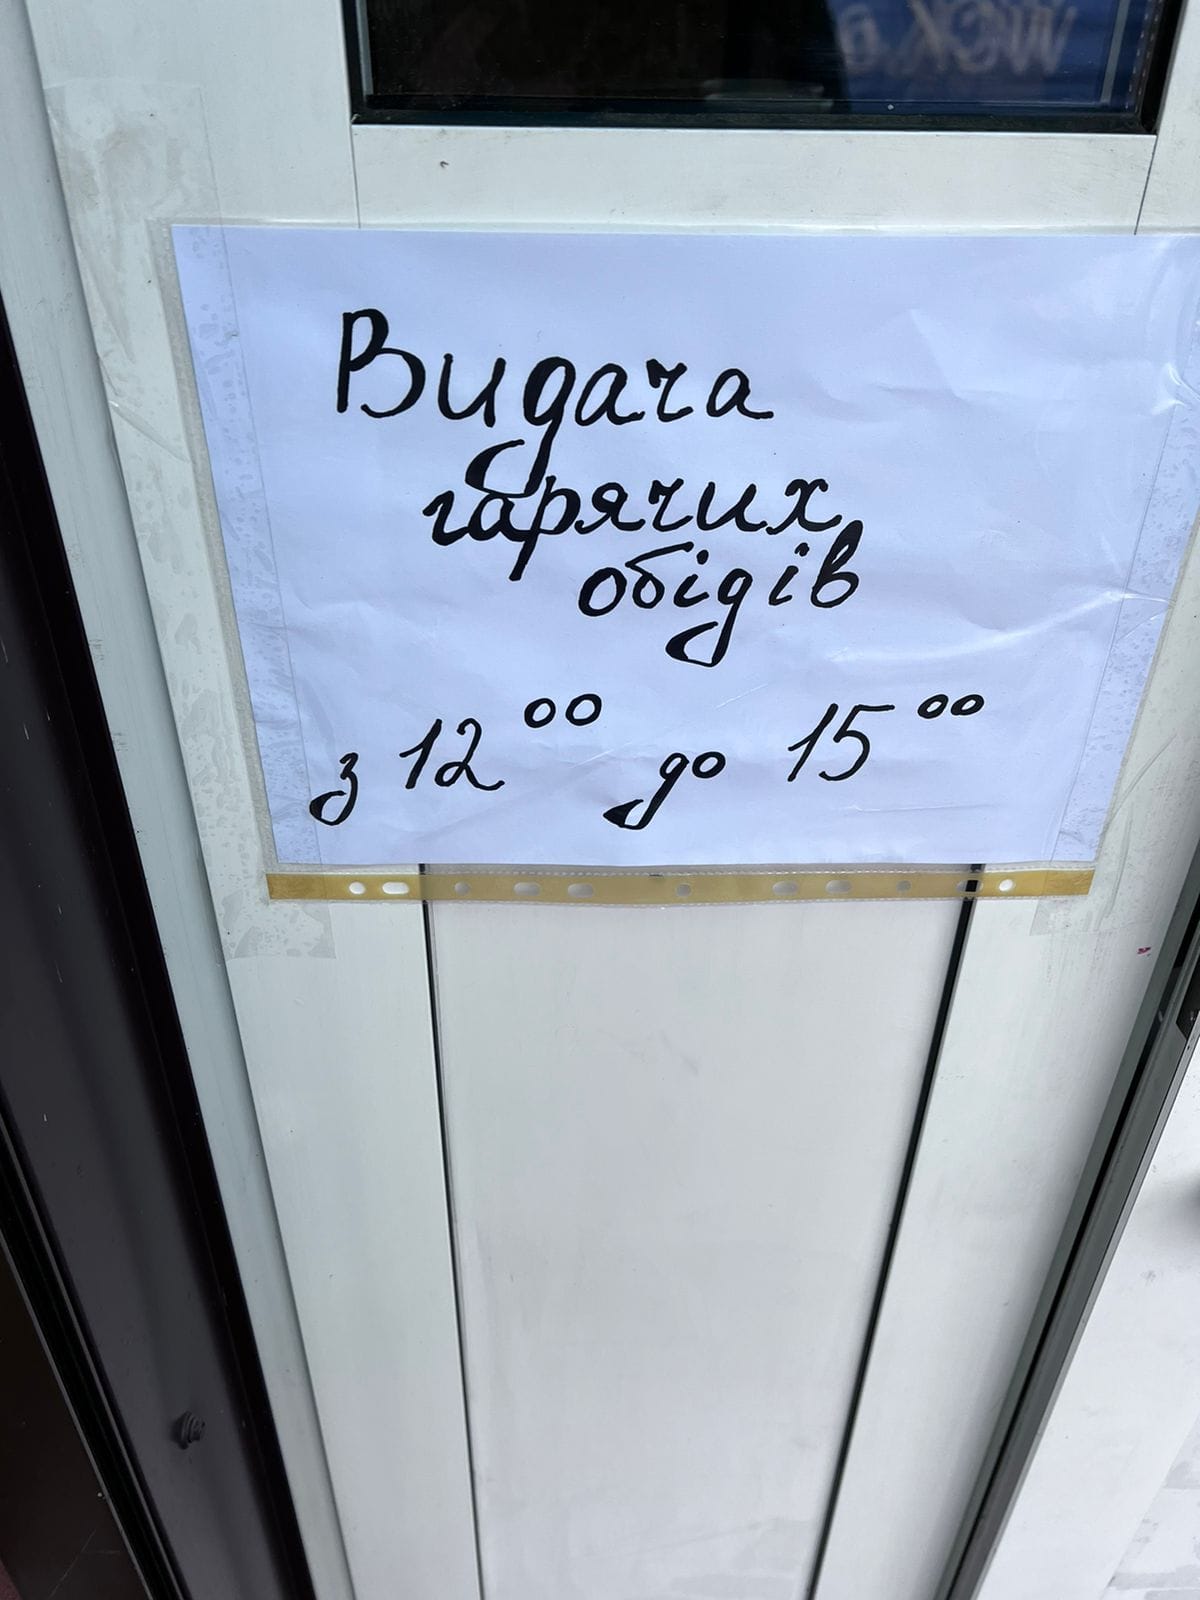 Видача
гарячих
обідів
з 12⁰⁰ до 15⁰⁰